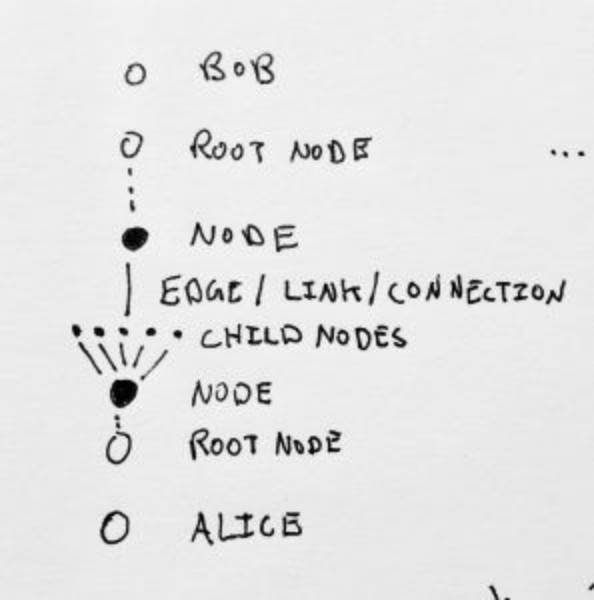 BOB
ROOT NODE
...
NODE
EDGE / LINK / CONNECTION
CHILD NODES
NODE
ROOT NODE
ALICE